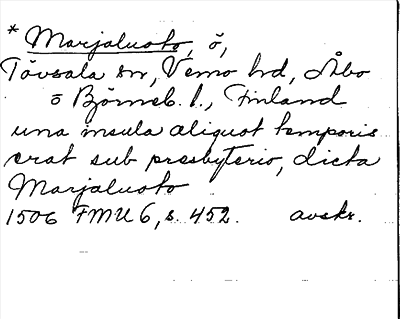 * Marjaluoto, ö,
Tövsala sn, Vemo hd, Åbo
o Björneb. l., Finland
una insula aliquot temporis
erat sub presbyterio, dicta
Marjaluoto
1506 FMU 6, s. 452. avskr.